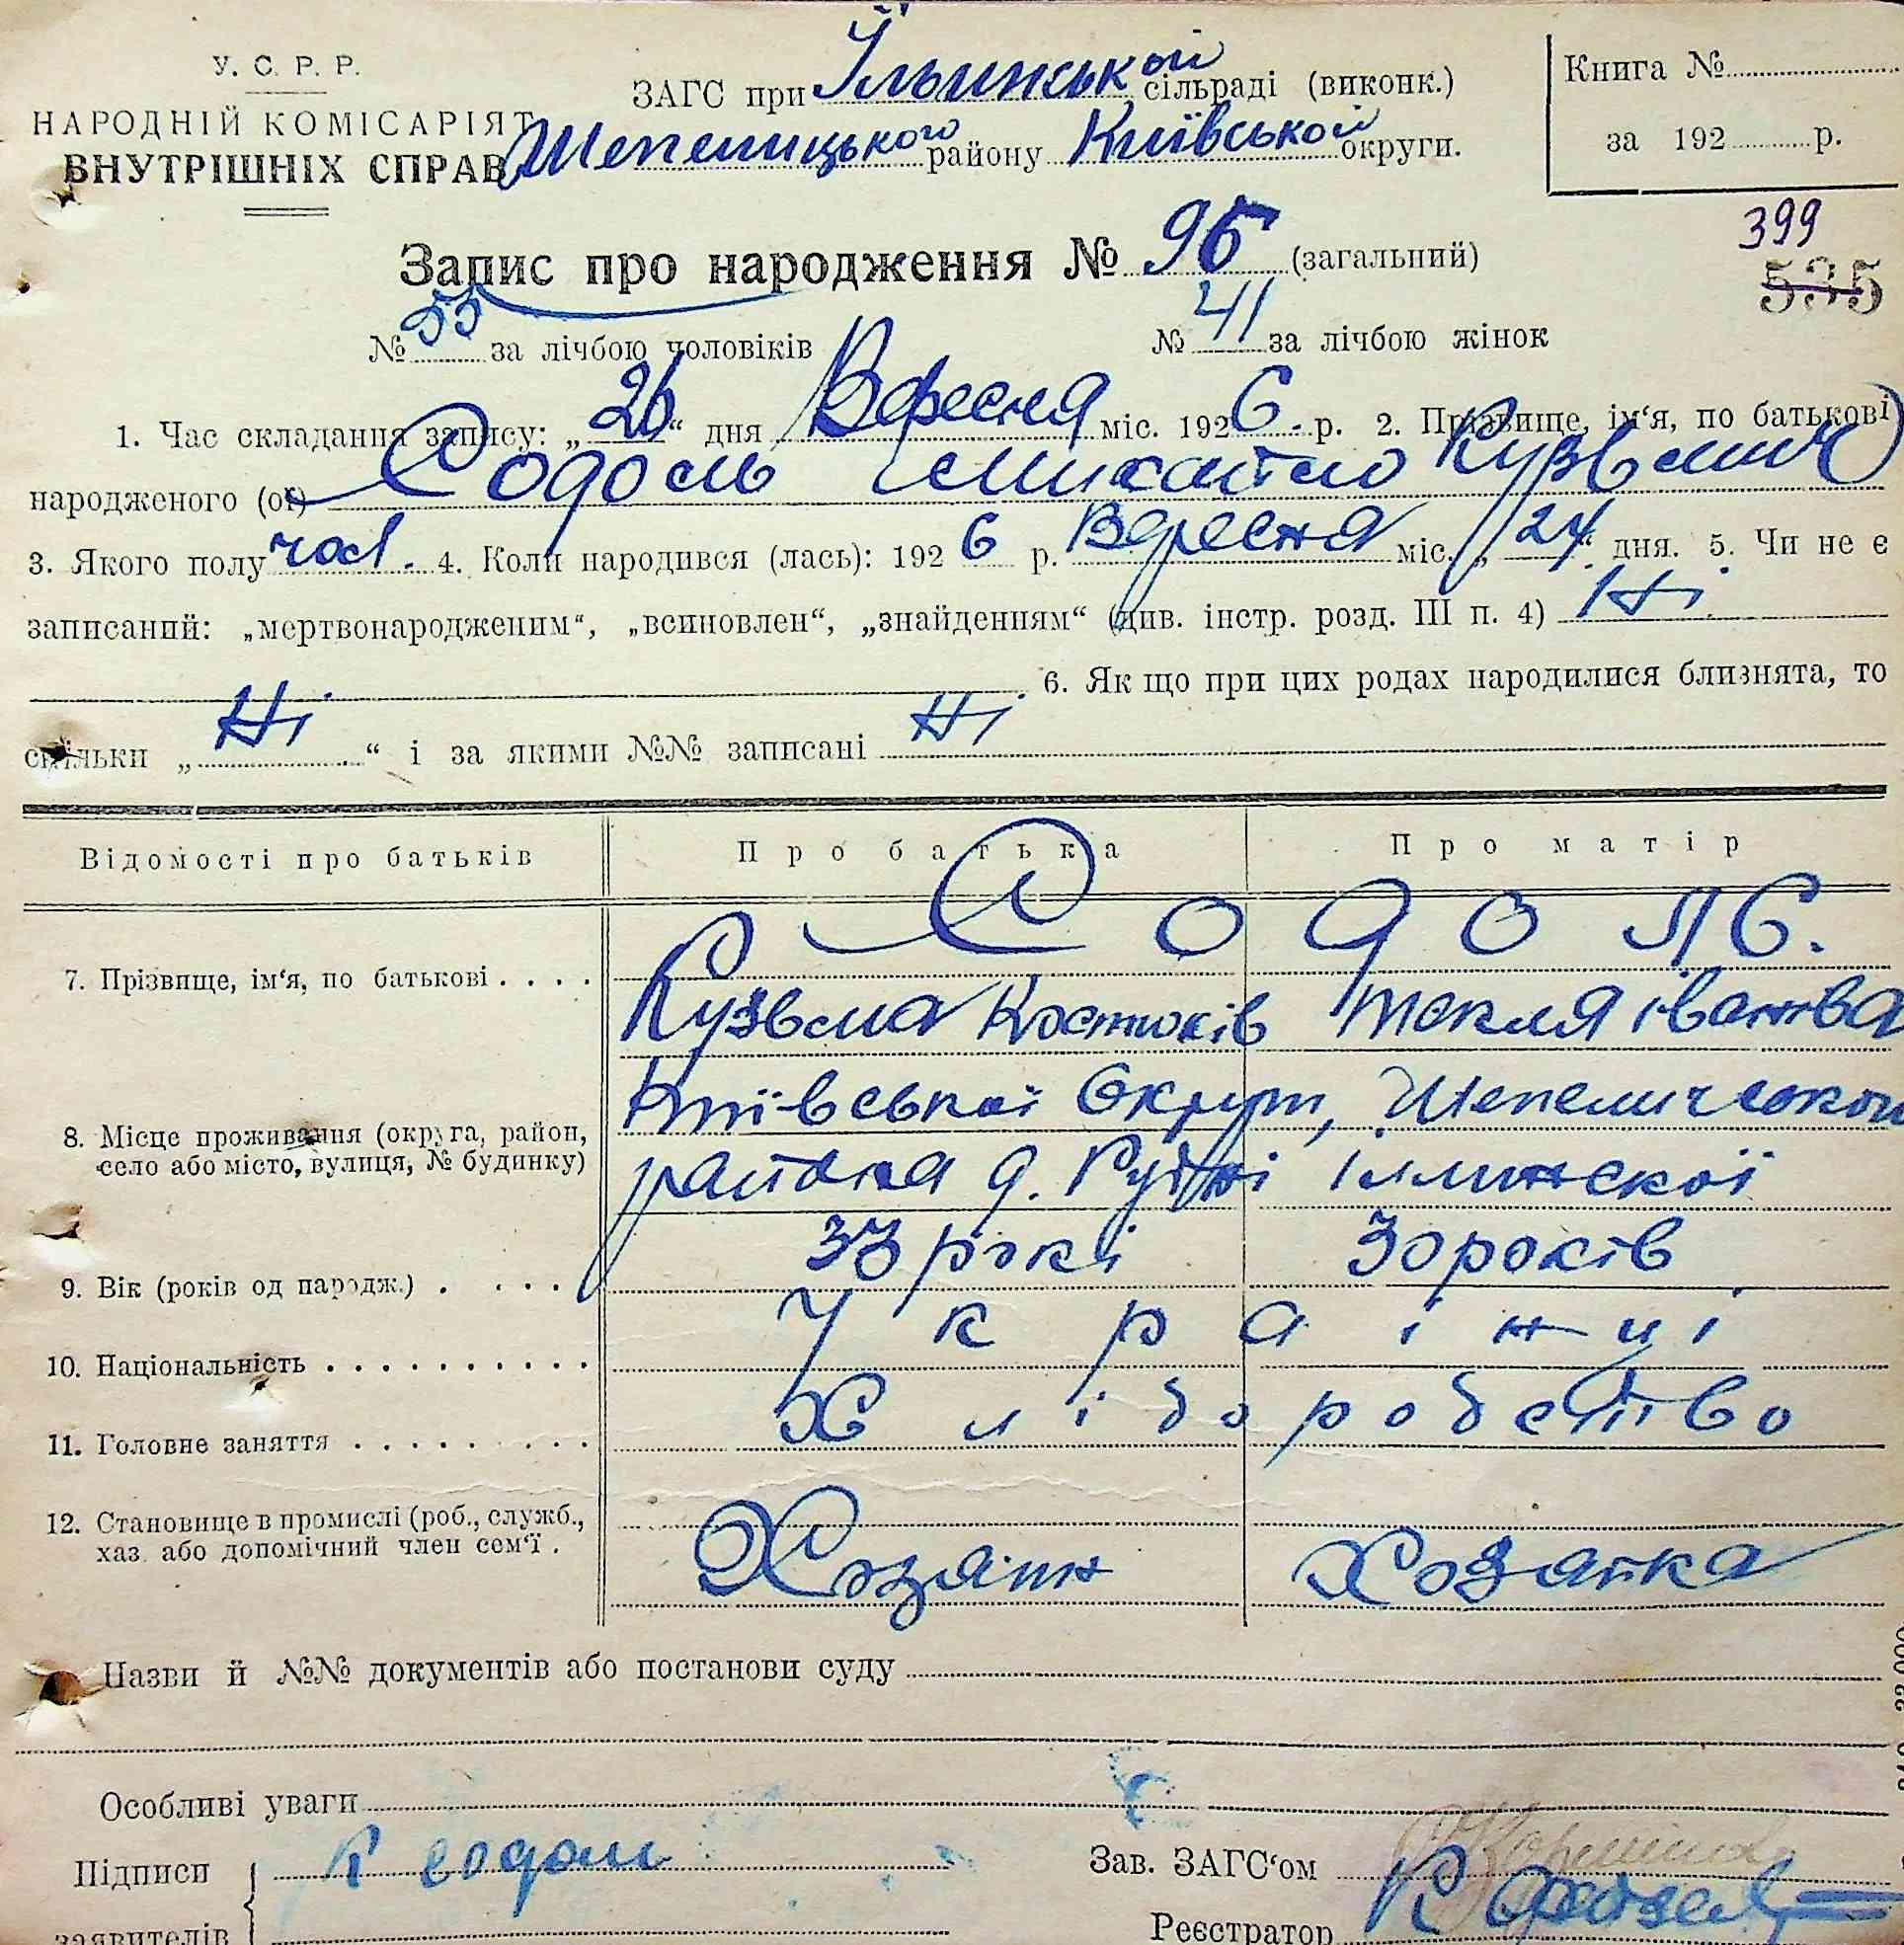 У. С. Р. Р.
НАРОДНІЙ КОМІСАРІЯТ
ВНУТРІШНІХ СПРАВ
ЗАГС при Їльинської сільраді (виконк.)
Шепелицького району Київської округи.
Книга №
за 192 р.
399
535
Запис про народження № 96 (загальний)
№ 55 за лічбою чоловіків № 41 за лічбою жінок
1. Час складання запису: „26“ дня Вересня міс. 1926. р. 2. Прізвище, ім‘я, по батькові
народженого (ої) Содоль Михайло Кузьмич
3. Якого полу чол. 4. Коли народився (лась): 1926 р. Вересня міс. „24“ дня. 5. Чи не є
записаний: „мертвонародженим“, „всиновлен“, „знайденням“ (див. інстр. розд. III п. 4) Ні.
6. Як що при цих родах народилися близнята, то
скільки „Ні“ і за якими №№ записані Ні
Відомості про батьків Про батька Про матір
Содоль.
7. Прізвище, ім‘я, по батькові . . . . Кузьма Костюків Текля Іванівна
8. Місце проживання (округа, район, село або місто, вулиця, № будинку) Київської Округи, Шепеличської
района д. Рудні Іллинскої
9. Вік (років од народж.) . . . . . 33 рокі 30 років
10. Національність . . . . . . . . . . Українці
11. Головне заняття . . . . . . . . . Хліборобство
12. Становище в промислі (роб., служб.,
хаз. або допомічний член сем‘ї . Хозяин Хозяйка
Назви й №№ документів або постанови суду
Особливі уваги
Підписи К Содоль
заявителів
Зав. ЗАГС‘ом
Реєстратор